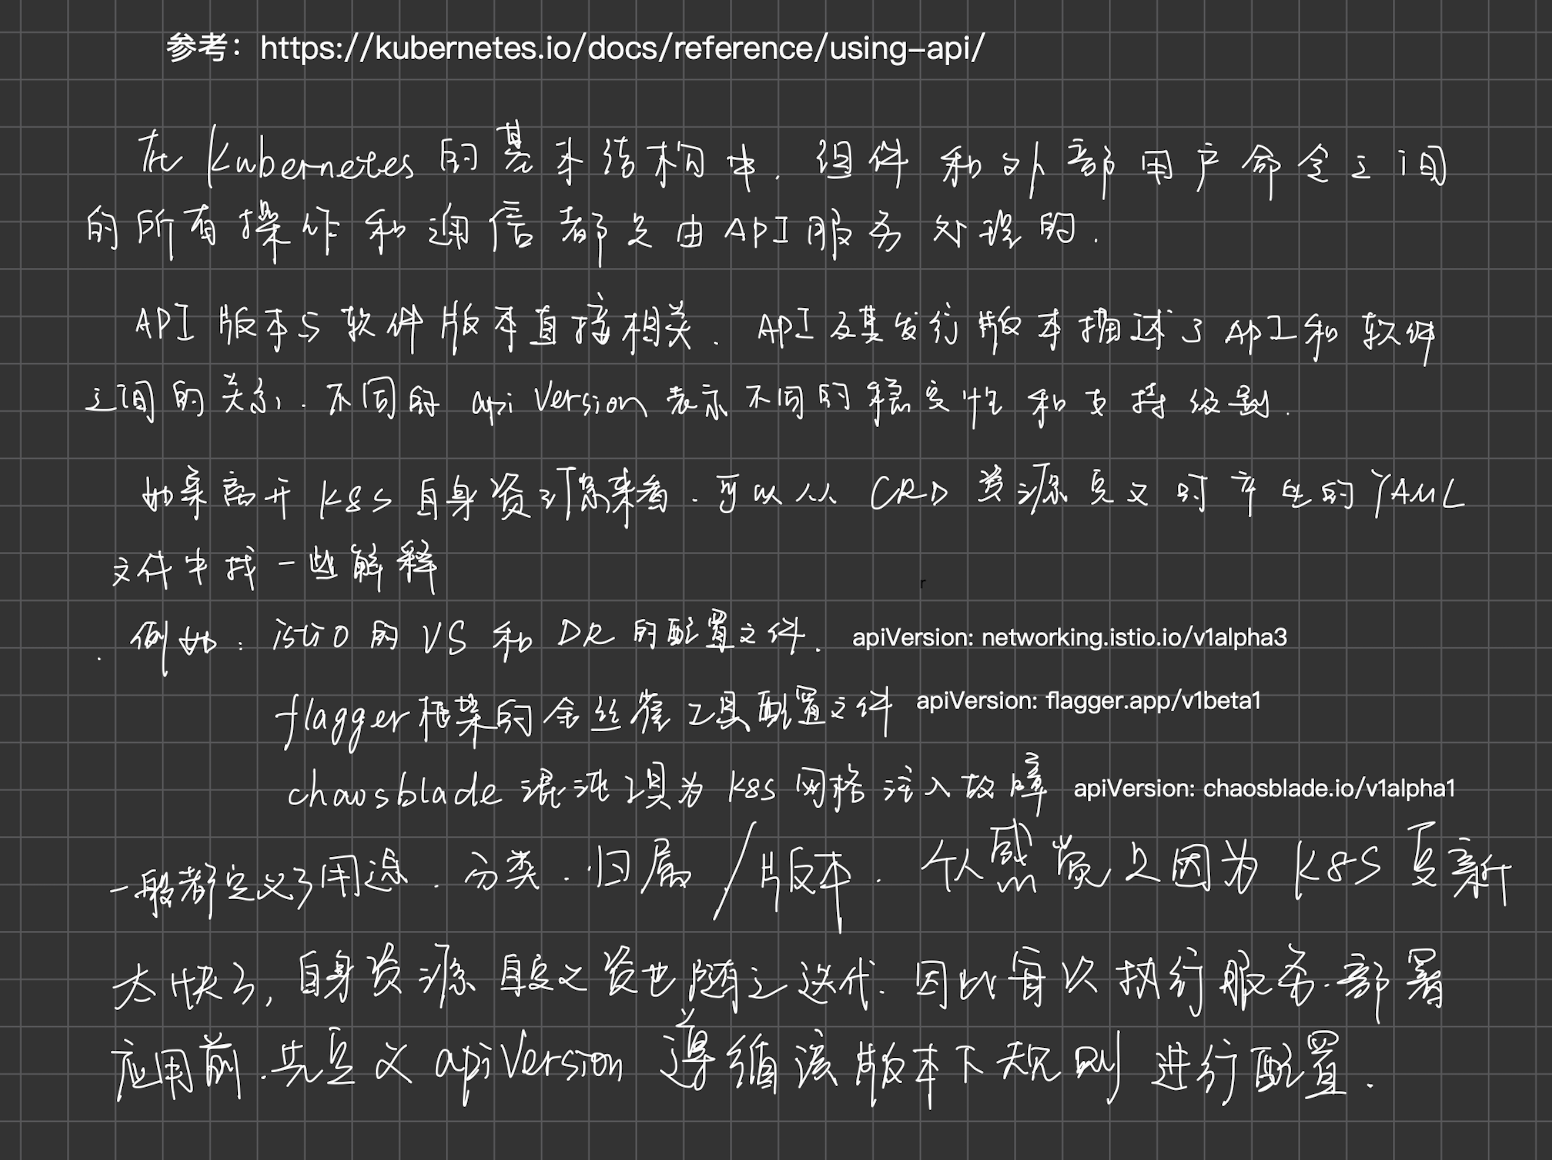 参考：https://kubernetes.io/docs/reference/using-api/
在Kubernetes的基本结构中，组件和外部用户命令之间
的所有操作和通信都是由API服务处理的．
API 版本与软件版本直接相关．API及其发行版本描述了API和软件
之间的关系．不同的 apiVersion 表示不同的稳定性和支持级别．
如果离开K8S自身资源来看．可以从 CRD 资源定义时产生的YAML
文件中找一些解释
．例如：istio的 VS 和 DR 的配置文件． apiVersion: networking.istio.io/v1alpha3
flagger框架的金丝雀工具配置文件 apiVersion: flagger.app/v1beta1
chaosblade 混沌工具为 K8S 网格注入故障 apiVersion: chaosblade.io/v1alpha1
一般都定义了用途．分类．归属／版本．个人感觉是因为 K8S 更新
太快了，自身资源 自定义资也随之迭代．因此每次执行服务．部署
应用前．先定义 apiVersion 遵循该版本下规则进行配置．